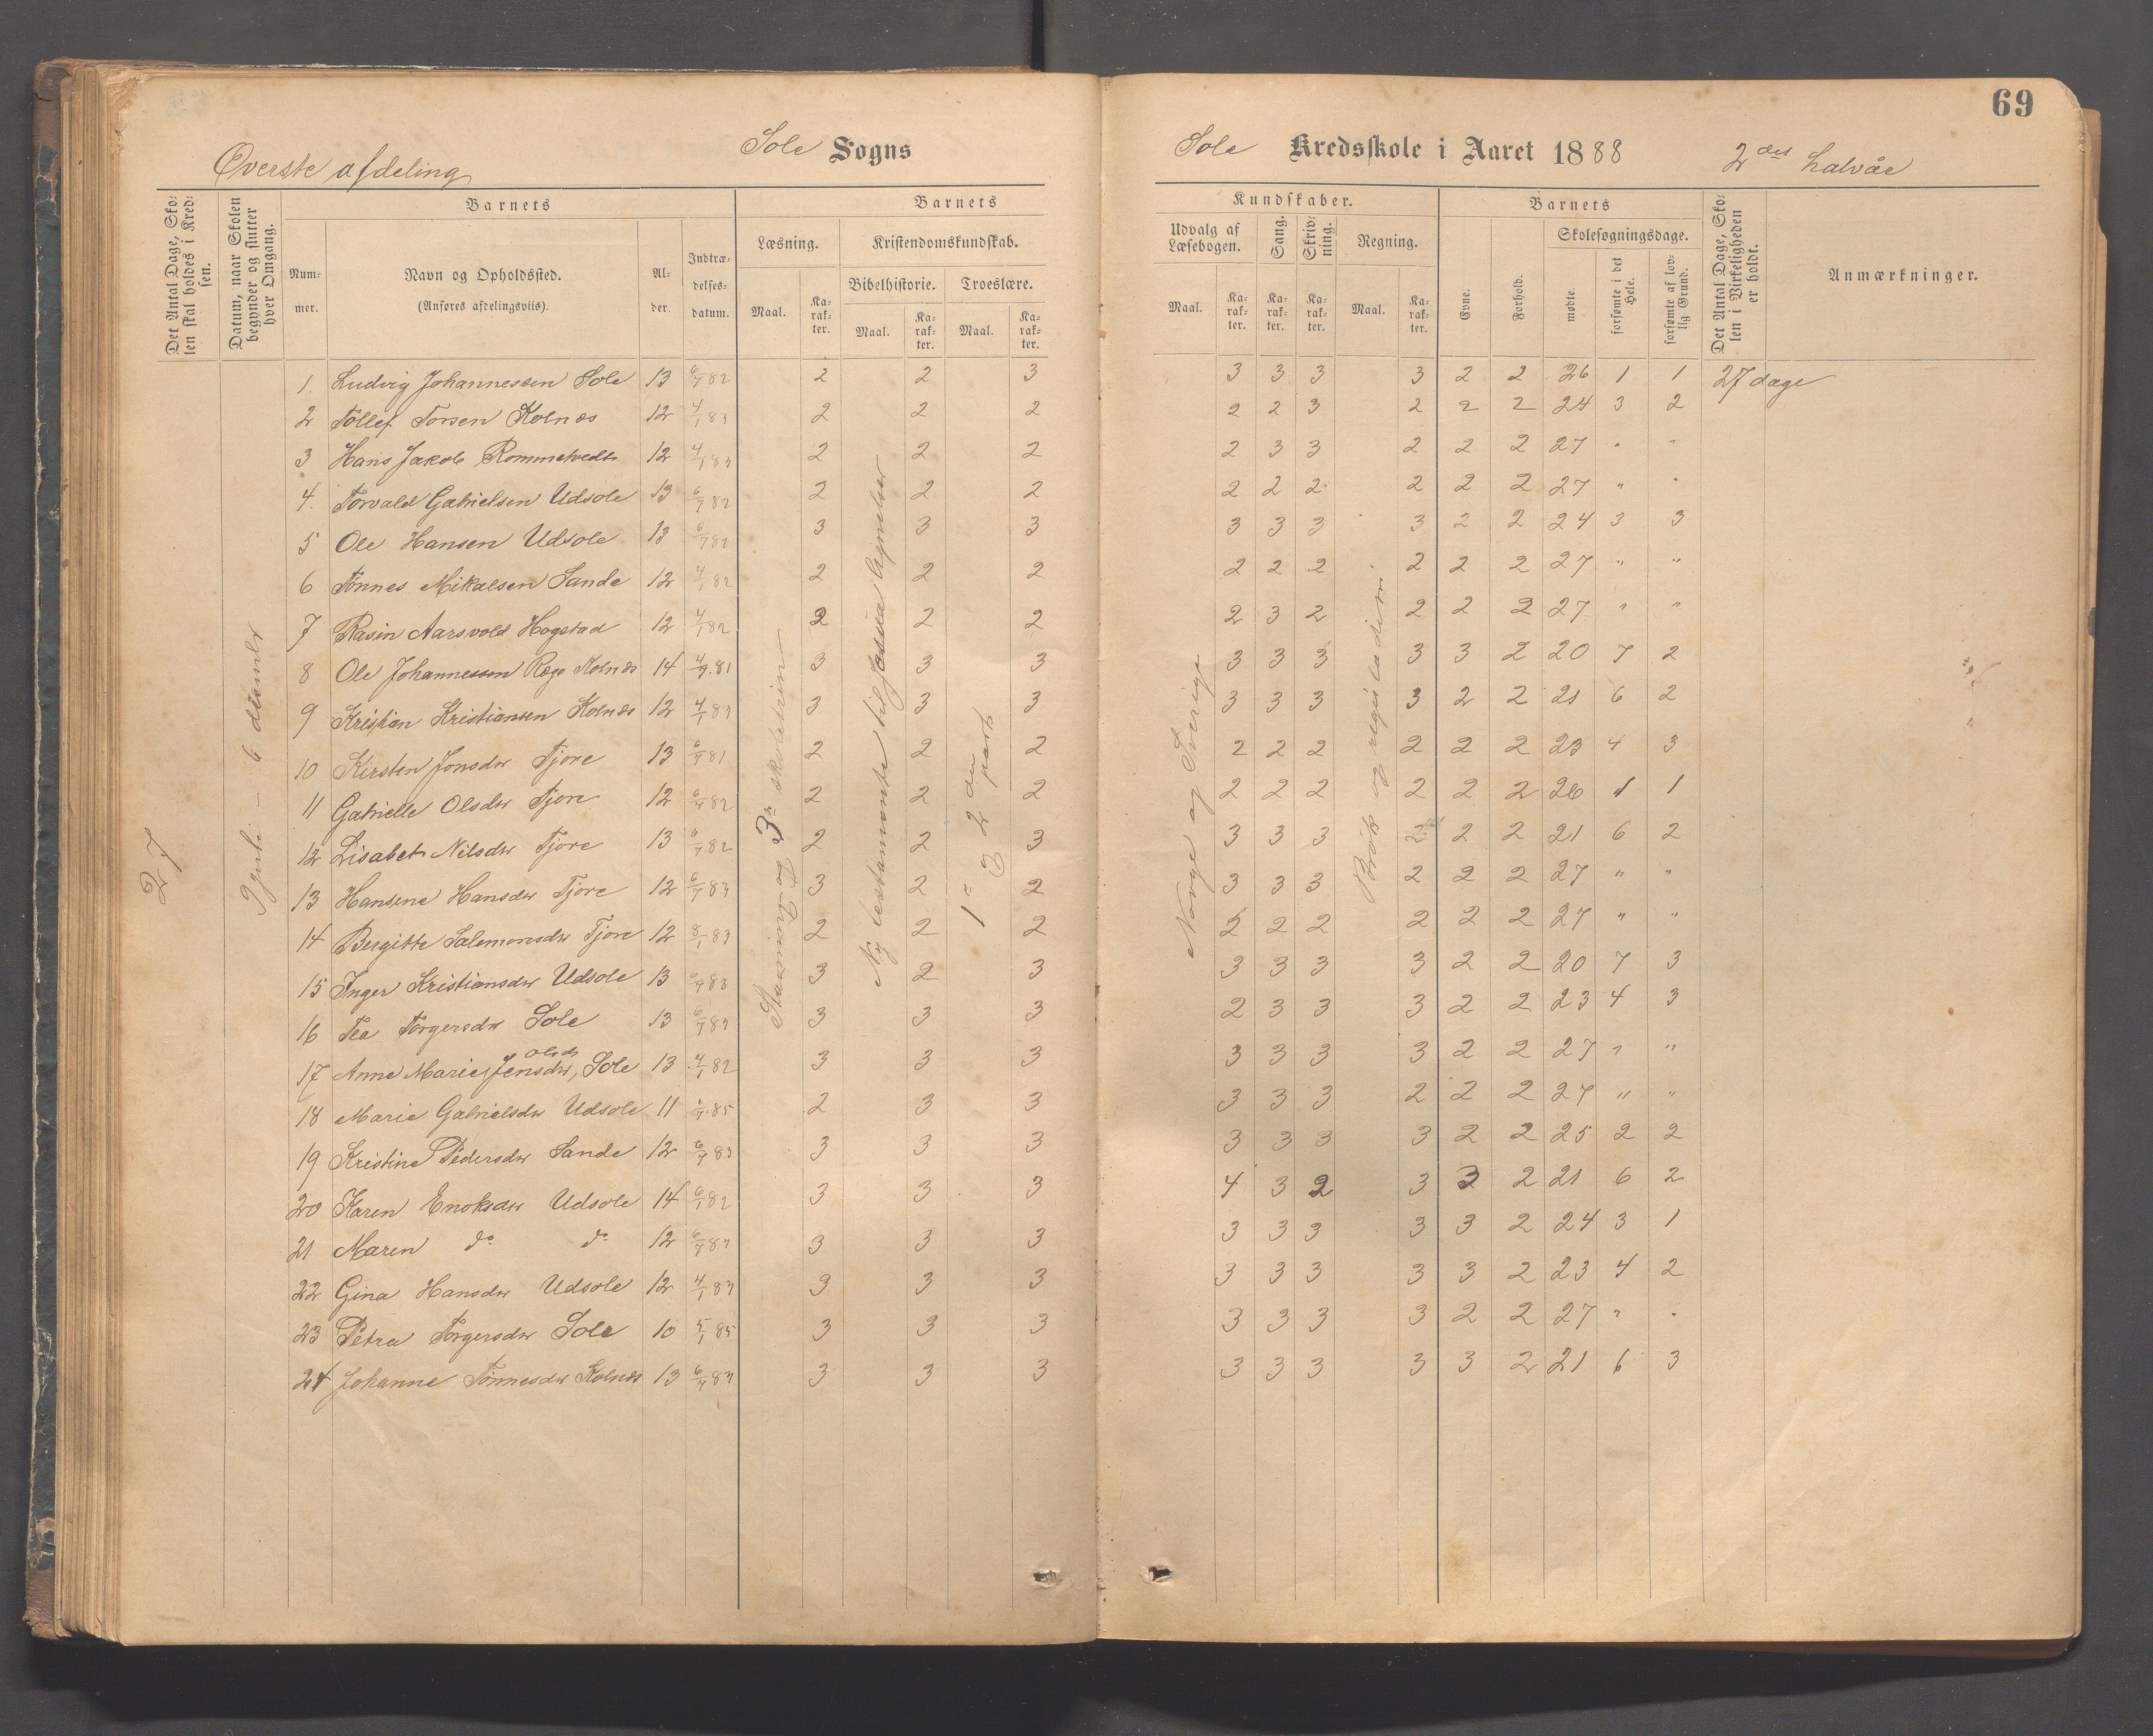 69
Sole Sogns
Sole Kredsskole i Aaret 1888 2det halvår
Øverste afdeling
Det Antal Dage, Skolen skal holdes i Kredsen.
Datum, naar Skolen begynder og slutter hver Omgang.
Barnets
Nummer.
Navn og Opholdssted.
(Anføres afdelingsviis).
Alder.
Indtrædelsesdatum.
Barnets
Læsning.
Maal.
Karakter.
Kristendomskundskab.
Bibelhistorie.
Maal.
Karakter.
Troeslære.
Maal.
Karakter.
Kundskaber.
Udvalg af Læsebogen.
Maal.
Karakter.
Sang.
Karakter.
Skrivning.
Karakter.
Regning.
Maal.
Karakter.
Barnets
Evne.
Forhold.
Skolesøgningsdage.
mødte.
forsømte i det Hele.
forsømte af lovlig Grund.
Det Antal Dage, Skolen i Virkeligheden er holdt.
Anmærkninger.
27
3die skoletrin
Ny testamente til
1ste og 2den part
Norge og Sverige
Brøk og
1. Ludvig Johannessen Sole 13 6/7 82 2 2 3 3 3 3 3 2 2 26 1 1 27 dage
2 Tollef Torsen Kolnes 12 4/1 83 2 2 2 2 2 3 2 2 2 24 3 2
3 Hans Jakob Rommetvedt 12 4/1 83 2 2 2 2 3 3 2 2 2 27 " "
4. Torvald Gabrielsen Udsole 13 6/7 82 2 2 2 2 2 2 2 2 2 27 " "
5 Ole Hansen Udsole 13 6/7 82 3 3 3 3 3 3 3 2 2 24 3 3
6 Tønnes Mikalsen Sande 12 4/1 82 2 2 2 2 2 2 2 2 2 27 " "
7 Rasin Aarsvold Hogstad 12 4/1 82 2 2 2 2 3 2 2 2 2 27 " "
8 Ole Johannessen Røge Kolnes 14 4/9 81 3 3 3 3 3 3 3 3 2 20 7 2
9 Kristian Kristiansen Kolnes 12 4/1 83 3 3 3 3 3 3 3 2 2 21 6 2
10 Kirsten Jonsdtr Tjore 13 6/7 81 2 2 2 2 2 2 2 2 2 23 4 3
11 Gabrielle Olsdtr Tjore 12 6/7 82 2 2 2 2 2 2 2 2 2 26 1 1
12 Lisabet Nilsdtr Tjore 13 6/7 82 2 2 3 3 3 3 2 2 2 21 6 2
13 Hansene Hansdtr Tjore 12 6/7 83 3 2 2 3 3 3 2 2 2 27 " "
14 Bergitte Salemonsdtr Tjore 12 8/1 83 2 2 2 2 2 2 2 2 2 27 " "
15 Inger Kristiansdtr Udsole 13 6/7 83 3 2 3 3 3 3 3 2 2 20 7 3
16 Tea Torgersdtr Sole 13 6/7 83 3 3 3 2 3 3 3 2 2 23 4 3
Olsdtr
17 Anne Marie Jensdtr, Sole 13 4/1 82 3 3 3 3 3 3 3 2 2 27 " "
18 Marie Gabrielsdtr Udsole 11 1/7 85 2 3 3 3 3 3 2 2 2 27 " "
19 Kristine Pedersdtr Sande 12 6/7 83 3 3 3 3 3 3 3 2 2 25 2 2
20 Karen Enoksdtr Udsole 14 6/1 82 3 3 3 4 3 2 3 3 2 21 6 2
21 Maren do do 12 6/7 83 3 3 3 3 3 3 3 3 2 24 3 1
22 Gina Hansdtr Udsole 12 4/1 83 3 3 3 3 3 3 3 3 2 23 4 2
23 Petra Torgersdtr Sole 10 5/1 85 3 3 3 3 3 3 3 2 2 27 " "
24 Johanne Tønnesdtr Kolnes 13 6/7 83 3 3 3 3 3 3 3 3 2 21 6 3